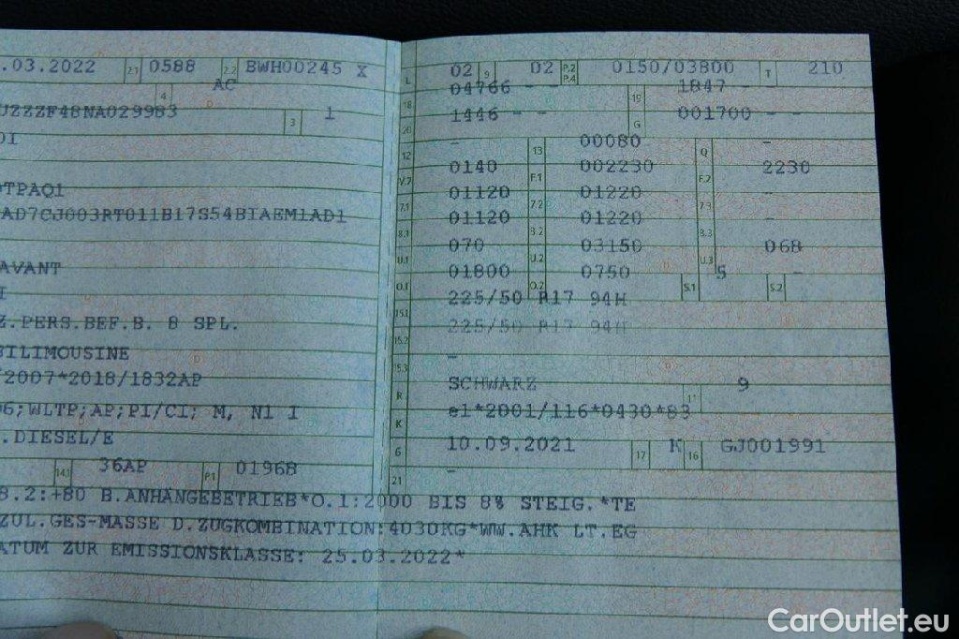 .03.2022 2.1 0588 2.2 BWH00245 X
4 AC
UZZZF48NA029983 3 1
DI
DTPAQ1
AD7CJ003RT011B17S54BTAEM1AD1
AVANT
I
Z.PERS.BEF.B. 8 SPL.
BILIMOUSINE
/2007*2018/1832AP
06;WLTP;AP;PI/CI; M, N1 I
.DIESEL/E
14.1 36AP P.1 01968
L 02 9 D2 P.2 P.4 0150/03800 T 210
18 04766 - - 19 1847 - -
20 1446 - - G 001700 - -
12 - 13 00080 Q -
V.7 0140 F.1 002230 F.2 2230
7.1 01120 7.2 01220 7.3 -
8.1 01120 8.2 01220 8.3 -
U.1 070 U.2 03150 U.3 068
O.1 01800 O.2 0750 S.1 5 S.2 -
15.1 225/50 R17 94H
15.2 225/50 R17 94H
15.3 -
R SCHWARZ 11 9
K e1*2001/116*0430*83
6 10.09.2021 17 K 16 GJ001991
21 -
8.2:+80 B.ANHÄNGEBETRIEB*O.1:2000 BIS 8% STEIG.*TE
ZUL.GES-MASSE D.ZUGKOMBINATION:4030KG*WW.AHK LT.EG
ATUM ZUR EMISSIONSKLASSE: 25.03.2022*
CarOutlet.eu